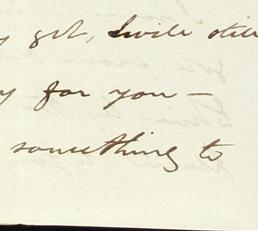 get, I will still
for you —
something to